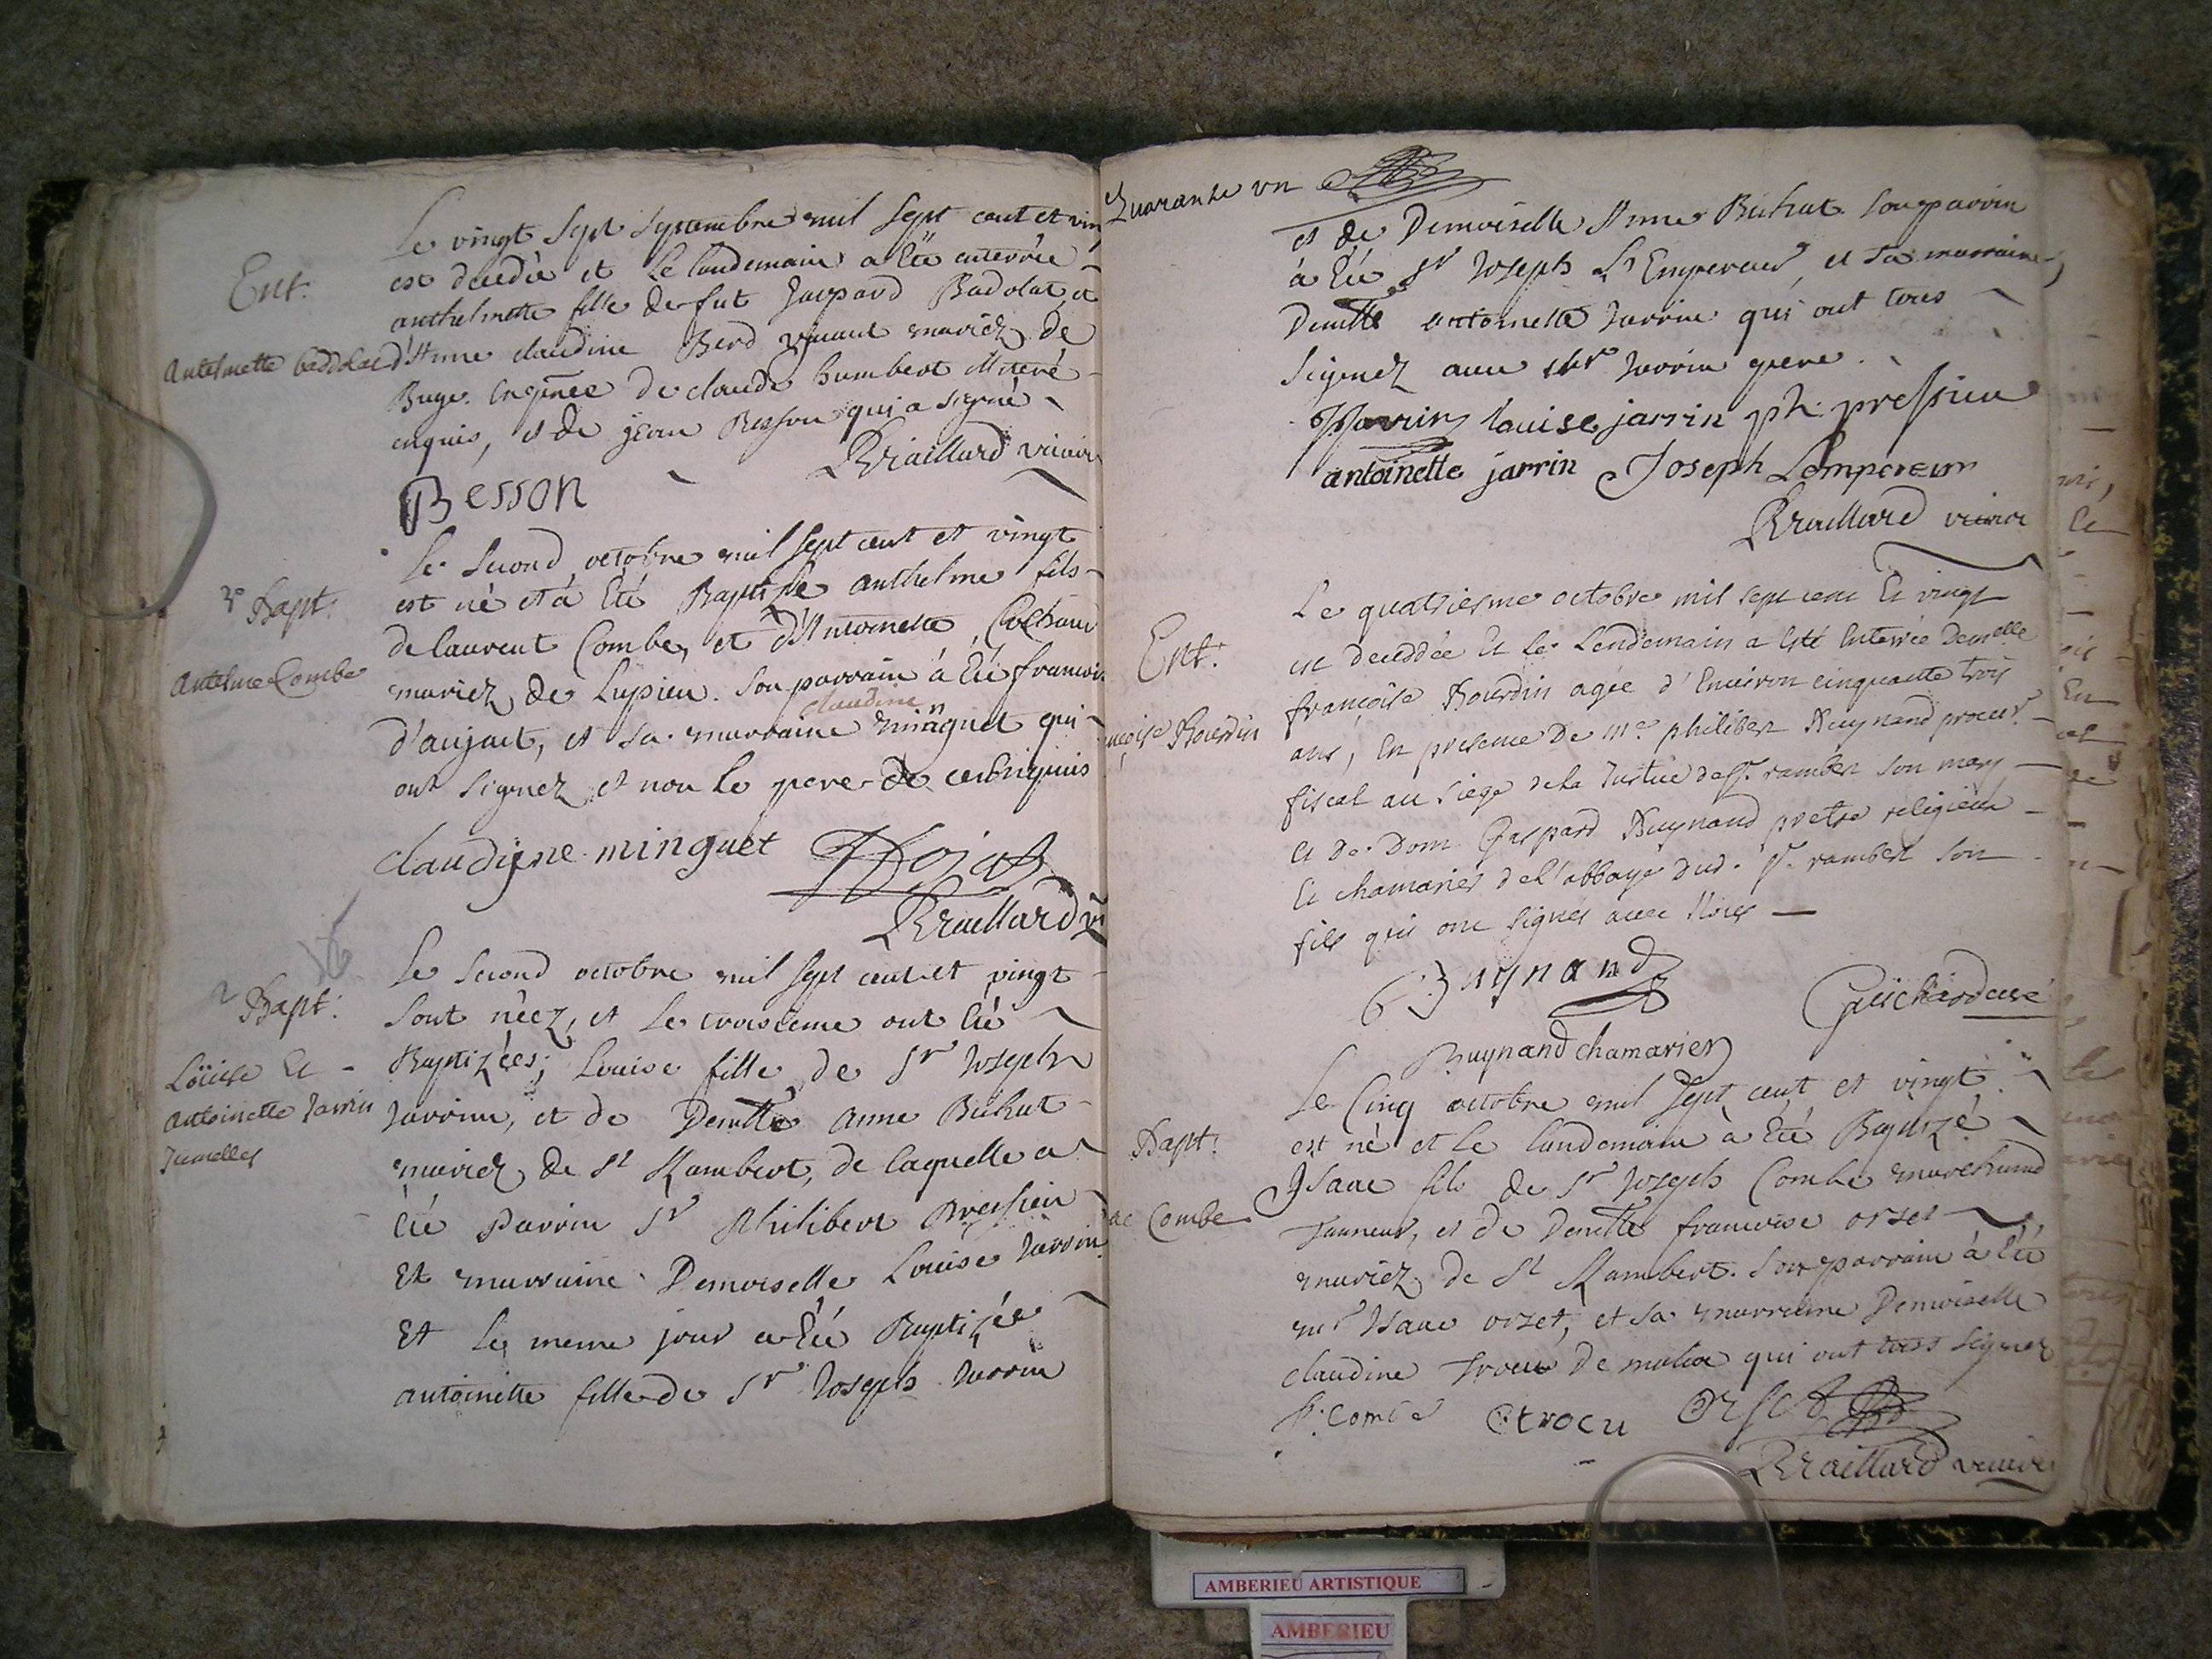 Ent.
Antelmette baddolat
Le vingt sept septembre mil sept cent et vin
est decedée et le landemain a été enterrée
anthelmette fille de fut Jaspard Badolat et
d'Anne claudine Berd vivant mariez de
Buge. En pnce de claude humbert illiteré
enquis, et de jean Besson qui a signé
Besson
Braillard vicaire
Bapt:
Antelme Combe
Le second octobre mil sept cent et vingt
est né et a été Baptisé anthelme fils
de laurent Combe, et d'Antoinette
mariez de Lupieu. Son parrain à été francois
claudine
d'aujact, et sa marraine minguet qui
ont signez et non le pere de ce enquis
claudine minguet
Braillard
Bapt:
Loüise Et
antoinette Jarrin
Jumelles
Le second octobre mil sept cent et vingt
sont néez, et le troisieme ont été
Baptizées; Louise fille de Sr Joseph
Jarrin, et de Demlle Anne Buhat
mariez de St Rambert, de laquelle a
été Parrin Sr Philibert Pressieu
Et marraine Demoiselle Louise Jarrin
Et le meme jour a été Baptizée
antoinette fille de Sr Joseph Jarrin
Quarante un
et de Demoiselle Anne Buhat. Son parrin
à été Sr Joseph L'Empereur, et sa marraine
Demlle antoinette Jarrin qui ont tous
signez avec Jarrin pere.
Jarrin louise jarrin ph. pressieu
antoinette jarrin Joseph Lempereur
Braillard vicaire
Ent:
Bourdin
Le quatriesme octobre mil sept cent Et vingt
est deceddée Et le Lendemain a Esté Enterrée Demelle
françoise Bourdin agée d'Environ cinquante trois
ans, En presence de Me philibert Buynand procur.
fiscal au siege de la Justice de St. rambert son mary
Et de Dom Gaspard Buynand pretre religieux
Et chamarier de l'abbaye dud. St. rambert son
fils qui ont signes avec Nous
Buynand
Guichard curé
Buynand chamarier
Bapt:
Combe
Le Cinq octobre mil sept cent et vingt
est né et le landemain à été Baptizé
Isaac fils de Sr Joseph Combe marchand
Tanneur, et de Demlle francoise orset
mariez de St Rambert. Son parrain à été
mr Isaac orset, et sa marraine Demoiselle
claudine trocu de qui ont tous signez
Combe Ctrocu Orset
Braillard vicaire
AMBERIEU ARTISTIQUE
AMBERIEU